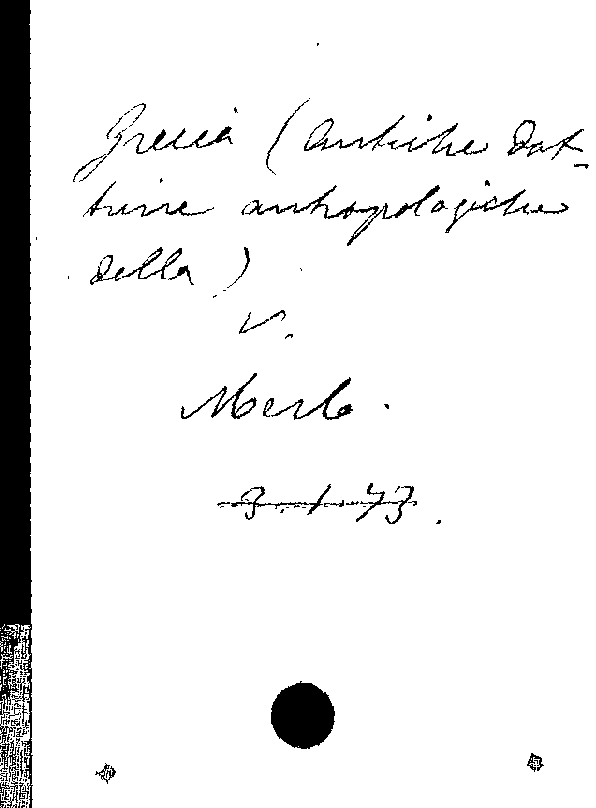 Grecia (antiche dot-
trine antropologiche
della)
V.
Merlo.
3.1.73.